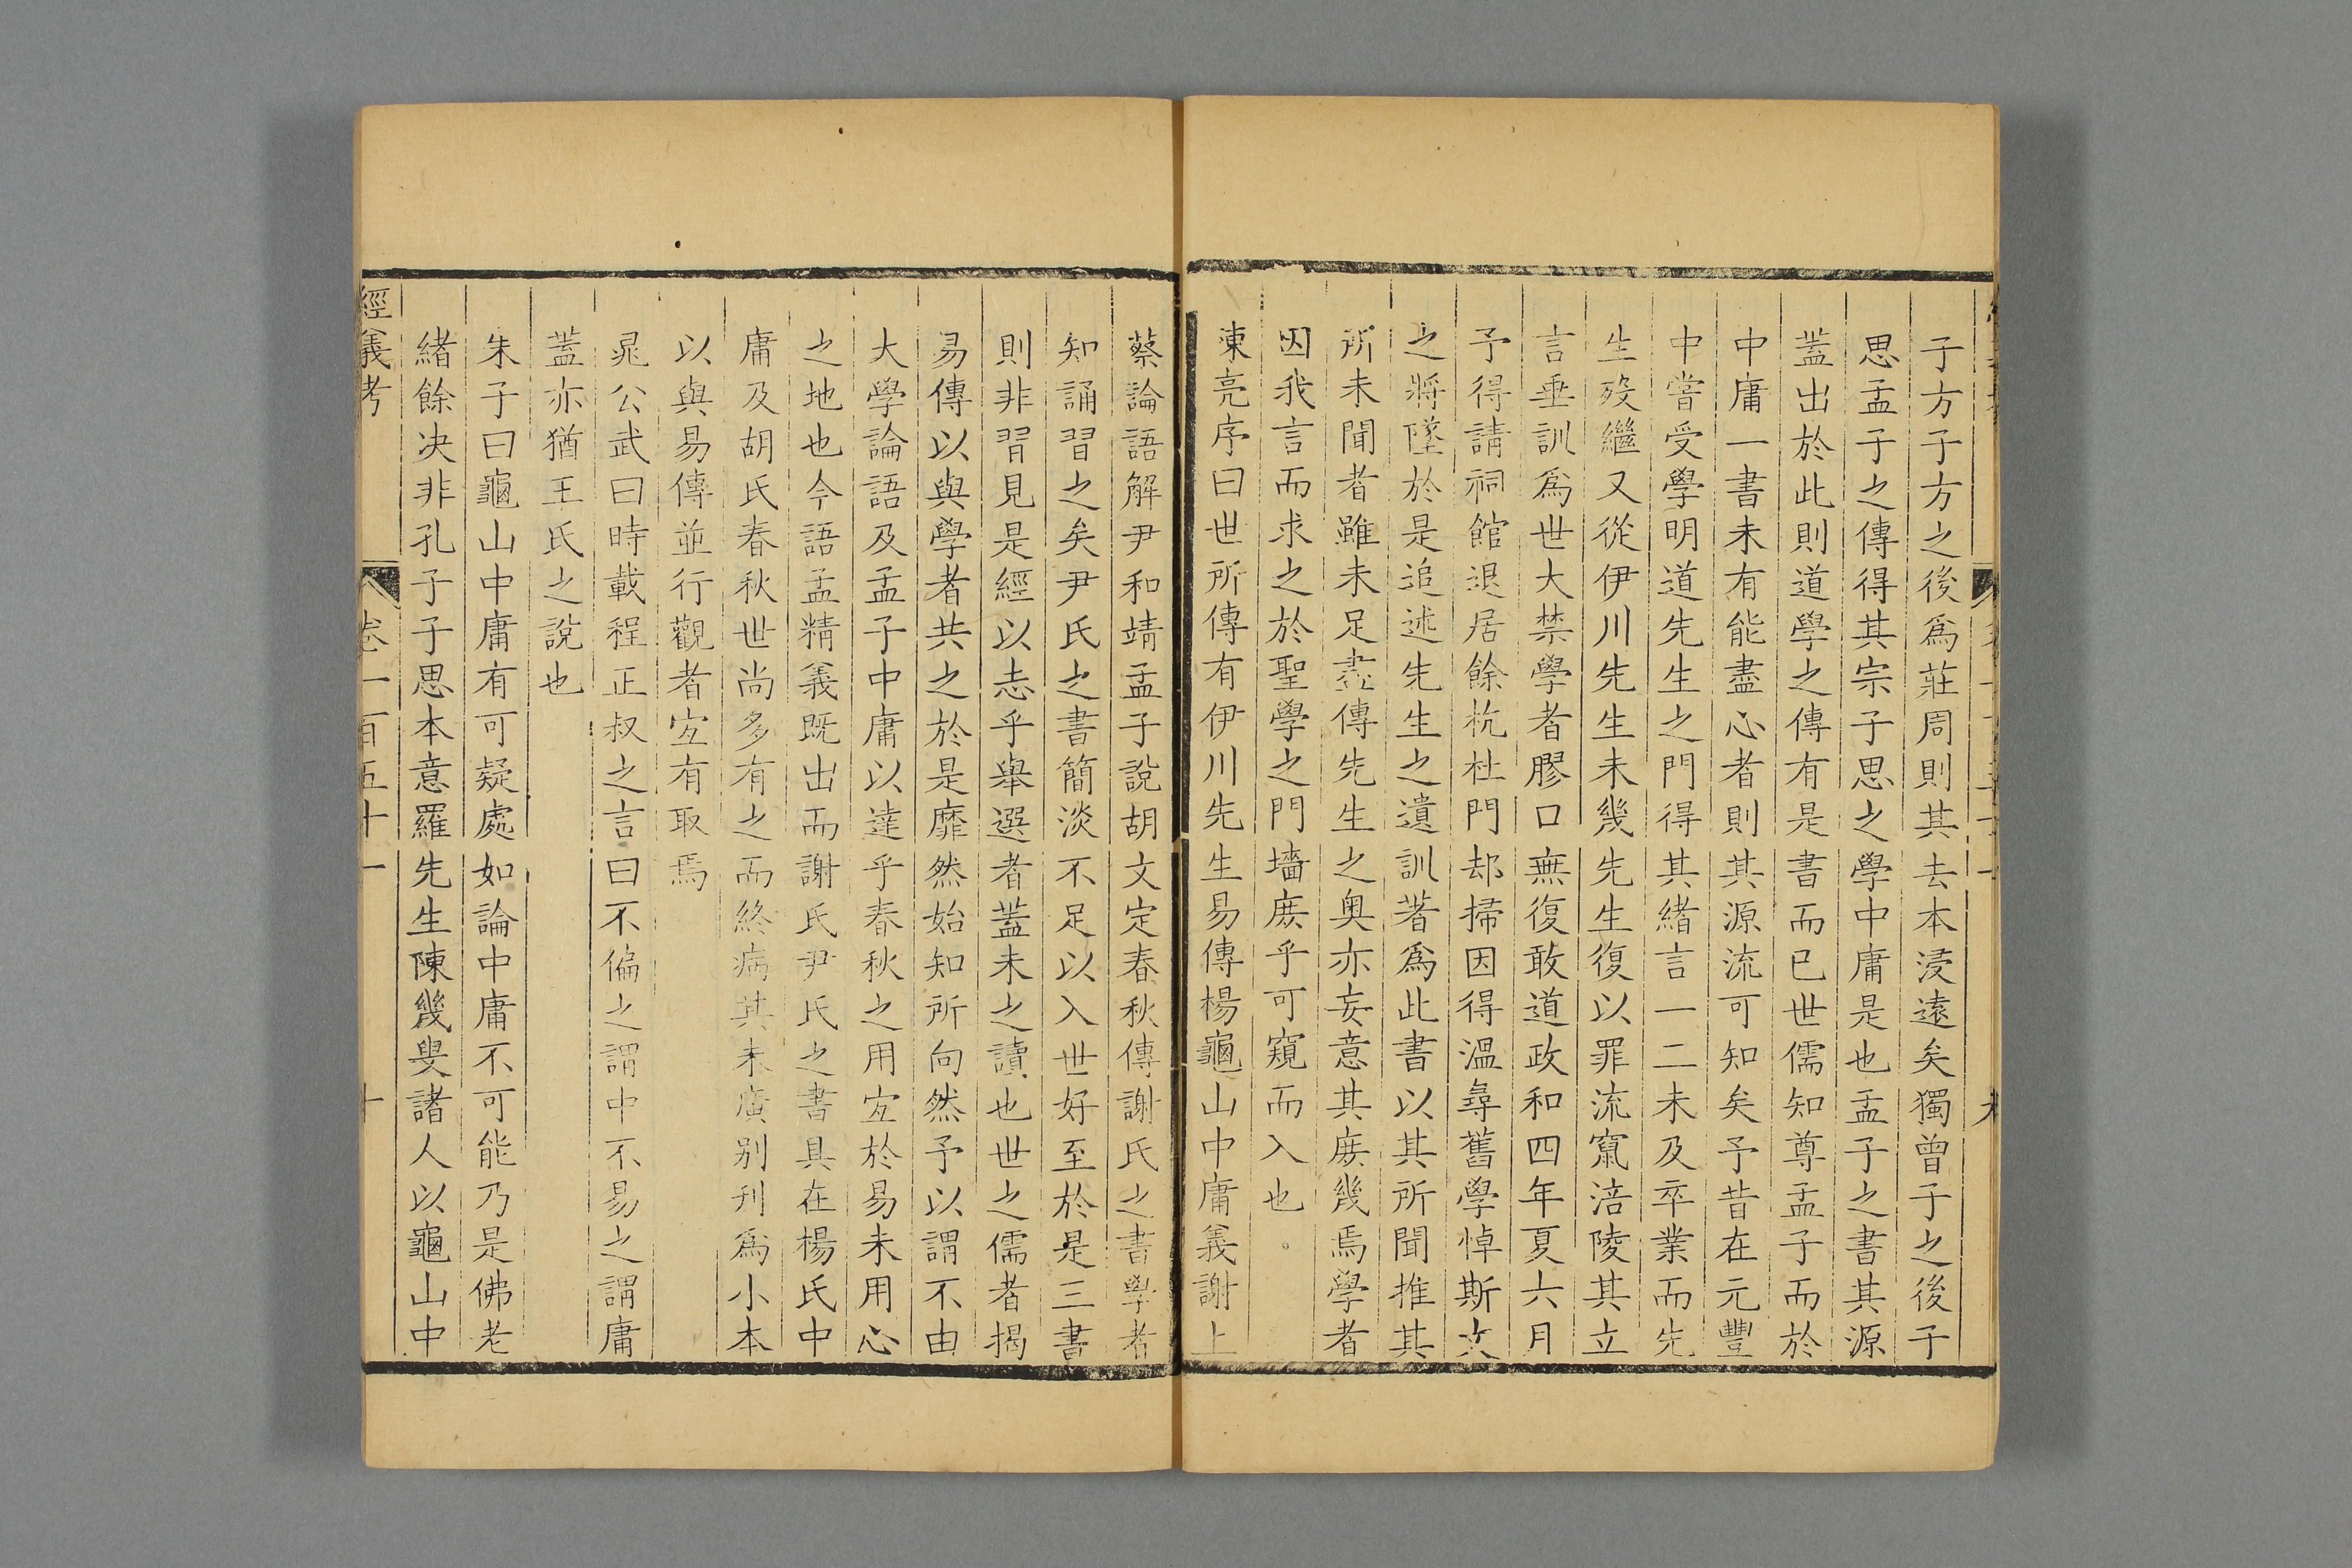 子方子方之後爲莊周則其去本浸遠矣獨曾子之後子
思孟子之傳得其宗子思之學中庸是也孟子之書其源
蓋出於此則道學之傳有是書而已世儒知尊孟子而於
中庸一書未有能盡心者則其源流可知矣予昔在元豐
中嘗受學明道先生之門得其緒言一二未及卒業而先
生歿繼又從伊川先生未幾先生復以罪流竄涪陵其立
言垂訓爲世大禁學者膠口無復敢道政和四年夏六月
予得請祠館退居餘杭杜門却掃因得溫尋舊學悼斯文
之將墜於是追述先生之遺訓著爲此書以其所聞推其
所未聞者雖未足盡傳先生之奧亦妄意其庶幾焉學者
因我言而求之於聖學之門墻庶乎可窺而入也
陳亮序曰世所傳有伊川先生易傳楊龜山中庸義謝上
蔡論語解尹和靖孟子說胡文定春秋傳謝氏之書學者
知誦習之矣尹氏之書簡淡不足以入世好至於是三書
則非習見是經以志乎舉選者蓋未之讀也世之儒者揭
易傳以與學者共之於是靡然始知所向然予以謂不由
大學論語及孟子中庸以達乎春秋之用宜於易未用心
之地也今語孟精義既出而謝氏尹氏之書具在楊氏中
庸及胡氏春秋世尚多有之而終病其未廣别刋爲小本
以與易傳並行觀者宜有取焉
晁公武曰時載程正叔之言曰不偏之謂中不易之謂庸
蓋亦猶王氏之說也
朱子曰龜山中庸有可疑處如論中庸不可能乃是佛老
緒餘决非孔子子思本意羅先生陳幾叟諸人以龜山中
經義考 卷一百五十一 十